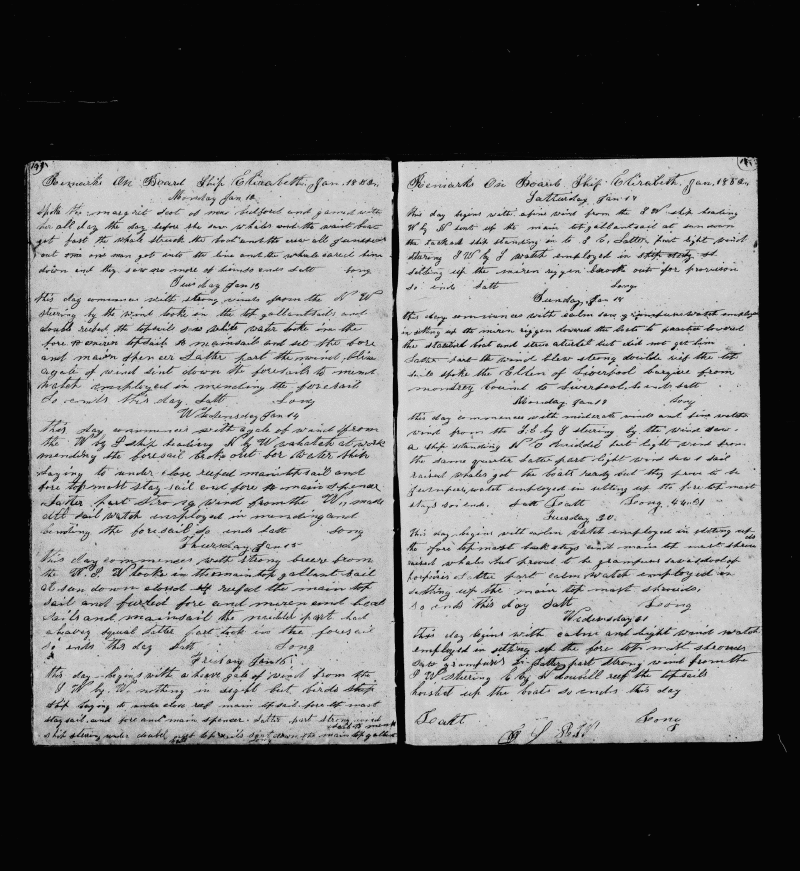 Remarks On Board Ship Elizabeth Jan. 1852
Monday Jan 12
Spoke the margrit Scot of new bedford and gamed with
her all day the day before she saw whales and the waist boat
got fast the whale struck the boat and the crew all jumped
out one man got into the line and the whale carred him
down and they saw no more of him so ends Latt Long
Tuesday Jan 13
this day commences with strong winds from the N W
stering by the wind tooke in the top gallantsails and
double reefed the topsails saw white water tooke in the
fore & mizen topsail & mainsail and set the fore
and main spencer Latter part the wind blew
a gale of wind sent down the foresails to mend
watch employed in mending the foresail
So ends this day Latt Long
Wednesday Jan 14
this day commences with a gale of wind from
the W by S ship heading N by W watch at work
mending the foresail took out for water ship
laying to under close reefed main topsail and
fore top mast stay sail and fore & main spencer
Latter part strong wind from the W, made
all sail watch employed in mending and
bending the foresail so ends Latt Long
Thursday Jan 15
this day commences with strong breeze from
the W S W tooke in the main top gallant sail
at sun down closed reefed the main top
sail and furled fore and mizen and head
sails and mainsail the middel part had
a heavy squal Latter part took in the foresail
so ends this day Latt Long
Friday Jan 16
this day begins with a heave gale of wind from the
S W by W, nothing in sight but birds ship
ship laying to under close reef main topsail fore top mast
stay sail, and fore and main spencer. Latter part strong wind
ship stering under double reef topsails sent down the main top gallant
sail to mend
Latt Long
Remarks On Board Ship Elizabeth. Jan, 1852
Satturday Jan 17
this day begins with a fine wind from the S W ship heading
W by N sent up the main top gallant sail at sun down
the tacked ship standing in to S E, Latter part light wind
stering S W by S watch employed in
setting up the mizen rigen broock out for provison
so ends Latt Long
Sunday, Jan 18
this day commences with calm saw grampuses watch employed
in setting up the mizen riggen lowered the boats to lowered
the starbord boat and struck but did not get him
Latter part the wind blew strong double reef the top
sails spoke the Elden of Liverpool bargue from
bound to Liverpool so ends Latt
Monday Jan 19 Long
this day commences with moderate winds and fine wather
wind from the S E by S stering by the wind saw
a ship standing N E middel part light wind from
the same quarter Latter part light wind saw a sail
raised whales got the boats ready but they prove to be
Jumpers, watch employed in setting up the fore top mast
stays so ends. Latt Latt Long, 44.51
Tuesday 20.
this day begins with calm watch employed in setting up
the fore top mast back stays and main top mast shrouds
raised whales but proved to be grampuses saw a school of
porpoises Latter part calm watch employed in
setting up the main top mast shrouds,
so ends this day Latt Long
Wednesday 21
this day begins with calm and light wind watch
employed in setting up the fore top mast shrouds
saw grampuses Latter part strong wind from the
S W stering E by N doubill reef the topsails
hoisted up the boats so ends this day
Latt Long